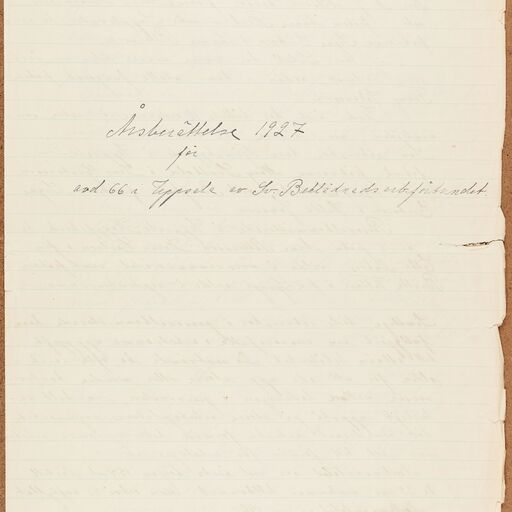 Årsberättelse 1927
för
avd 66 i Uppsala av Sv. Beklädnadsarb.förbundet.